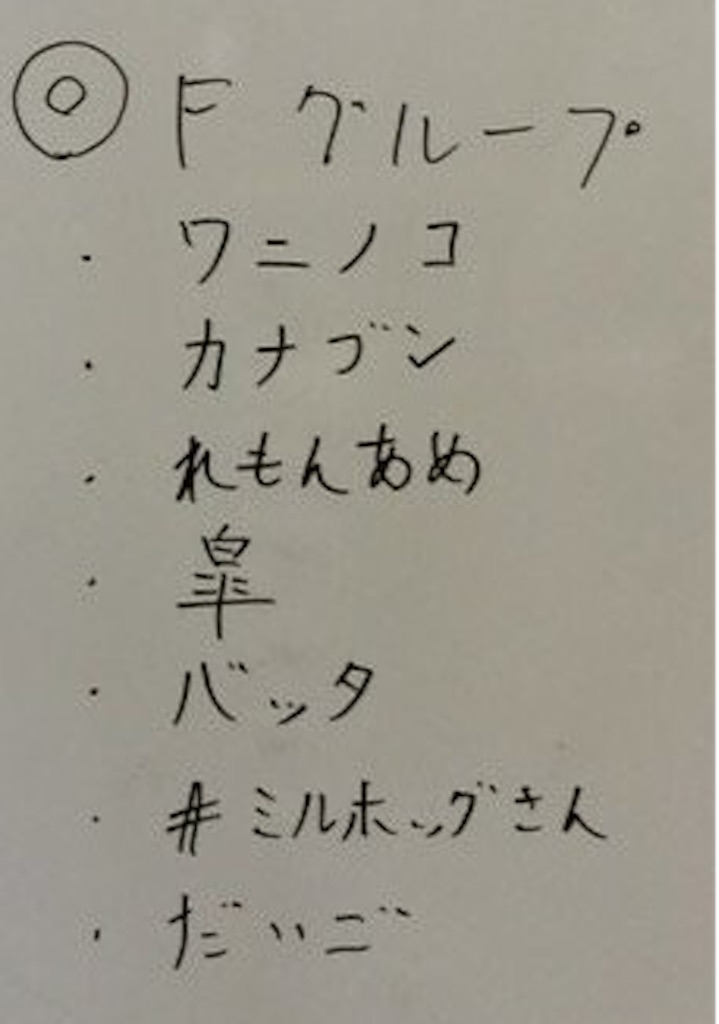 ◎ Fグループ
・ワニノコ
・カナブン
・れもんあめ
・皐
・バッタ
・#ミルホッグさん
・だいご